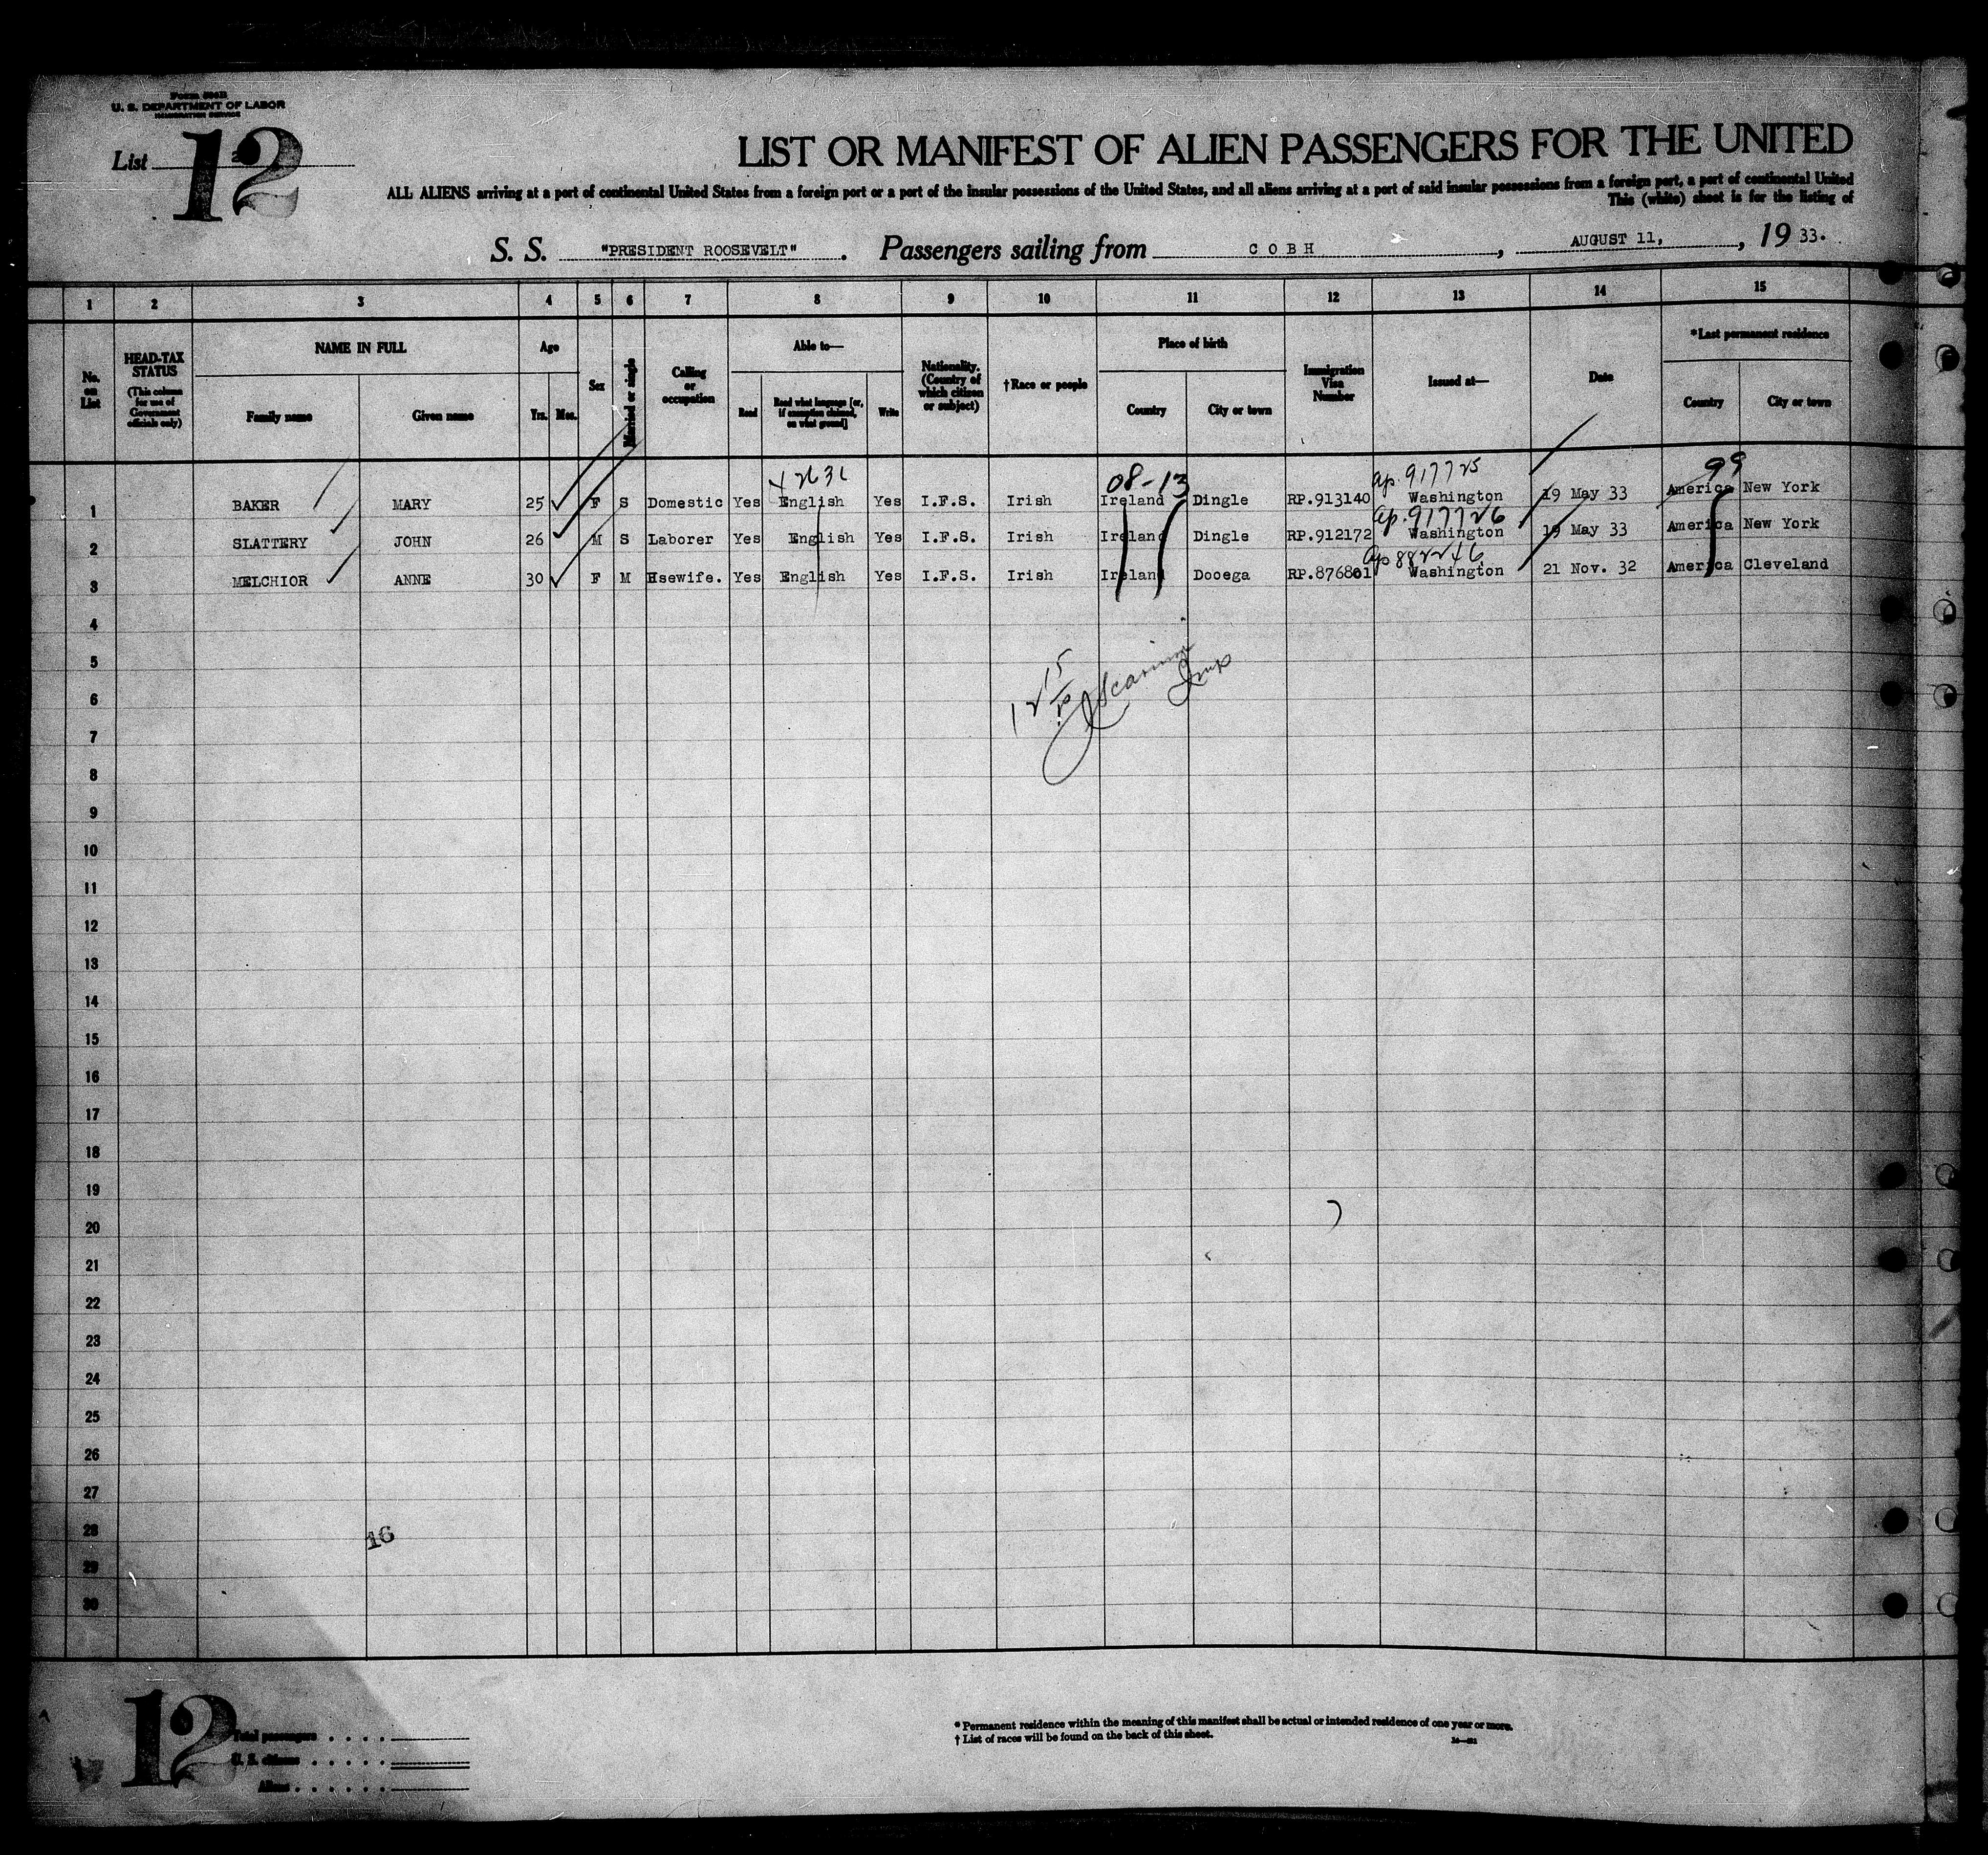 U. S. DEPARTMENT OF LABOR
IMMIGRATION SERVICE
List 12
LIST OR MANIFEST OF ALIEN PASSENGERS FOR THE UNITED
ALL ALIENS arriving at a port of continental United States from a foreign port or a port of the insular possessions of the United States, and all aliens arriving at a port of said insular possessions from a foreign port, a port of continental United
This (white) sheet is for the listing of
S. S. "PRESIDENT ROOSEVELT". Passengers sailing from COBH, AUGUST 11, 1933.
1 2 3 4 5 6 7 8 9 10 11 12 13 14 15
No. on List
HEAD-TAX STATUS
(This column for use of Government officials only)
NAME IN FULL
Family name Given name
Age
Yrs. Mos.
Sex
Married or single
Calling or occupation
Able to—
Read Read what language [or, if exemption claimed, on what ground] Write
Nationality. (Country of which citizen or subject)
†Race or people
Place of birth
Country City or town
Immigration Visa Number
Issued at—
Date
*Last permanent residence
Country City or town
08-13 ap. 917725 99
1 BAKER MARY 25 F S Domestic Yes English Yes I.F.S. Irish Ireland Dingle RP.913140 Washington 19 May 33 America New York
ap. 917726
2 SLATTERY JOHN 26 M S Laborer Yes English Yes I.F.S. Irish Ireland Dingle RP.912172 Washington 19 May 33 America New York
3 MELCHIOR ANNE 30 F M Hsewife. Yes English Yes I.F.S. Irish Ireland Dooega RP.876801 Washington 21 Nov. 32 America Cleveland
4
5
6
7
8
9
10
11
12
13
14
15
16
17
18
19
20
21
22
23
24
25
26
27
28
16
29
30
12
Total passengers
U. S. citizens
Aliens
* Permanent residence within the meaning of this manifest shall be actual or intended residence of one year or more.
† List of races will be found on the back of this sheet.